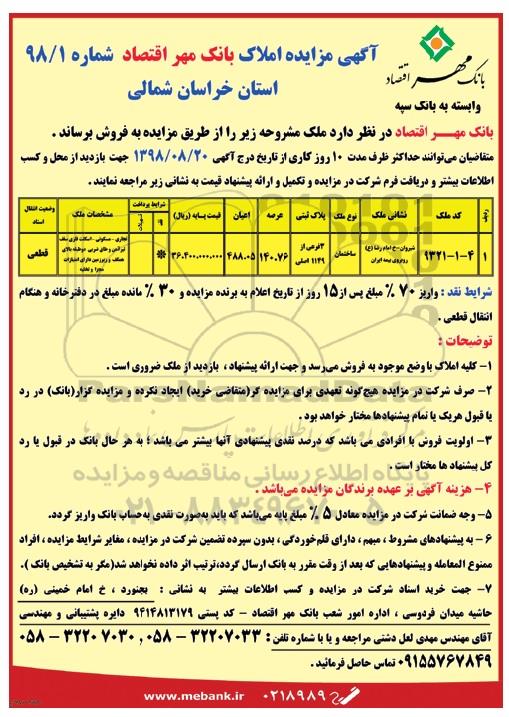 بانک مهر اقتصاد
وابسته به بانک سپه
آگهی مزایده املاک بانک مهر اقتصاد شماره ۹۸/۱
استان خراسان شمالی
بانک مهـــر اقتصاد در نظر دارد ملک مشروحه زیر را از طریق مزایده به فروش برساند .
متقاضیان می‌توانند حداکثر ظرف مدت ۱۰ روز کاری از تاریخ درج آگهی ۱۳۹۸/۰۸/۲۰ جهت بازدید از محل و کسب
اطلاعات بیشتر و دریافت فرم شرکت در مزایده و تکمیل و ارائه پیشنهاد قیمت به نشانی زیر مراجعه نمایند .
ردیف کد ملک نشانی ملک نوع ملک پلاک ثبتی عرصه اعیان قیمت پایه (ریال) شرایط پرداخت نقد مشخصات ملک وضعیت انتقال اسناد
۱ ۹۳۲۱-۱-۴ شیروان-خ امام رضا (ع) روبروی بیمه ایران ساختمان ۳فرعی از ۱۱۴۹ اصلی ۱۴۰.۷۶ ۴۸۸.۰۵ ۳۶.۴۰۰.۰۰۰.۰۰۰ * تجاری - مسکونی - اسکلت فلزی سقف تیرآهن و طاق ضربی دوطبقه بالای همکف و زیرزمین دارای امتیازات مجزا و تخلیه قطعی
شرایط نقد : واریز ۷۰ ٪ مبلغ پس از ۱۵ روز از تاریخ اعلام به برنده مزایده و ۳۰ ٪ مانده مبلغ در دفترخانه و هنگام
انتقال قطعی .
توضیحات :
۱- کلیه املاک با وضع موجود به فروش می‌رسد و جهت ارائه پیشنهاد ، بازدید از ملک ضروری است .
۲- صرف شرکت در مزایده هیچ‌گونه تعهدی برای مزایده گر(متقاضی خرید) ایجاد نکرده و مزایده گزار(بانک) در رد
یا قبول هریک یا تمام پیشنهادها مختار خواهد بود .
۳- اولویت فروش با افرادی می باشد که درصد نقدی پیشنهادی آنها بیشتر می باشد ؛ به هر حال بانک در قبول یا رد
کل پیشنهاد ها مختار است .
۴- هزینه آگهی بر عهده برندگان مزایده می‌باشد .
۵- وجه ضمانت شرکت در مزایده معادل ۵ ٪ مبلغ پایه می‌باشد که باید به‌صورت نقدی به‌حساب بانک واریز گردد.
۶- به پیشنهادهای مشروط ، مبهم ، دارای قلم‌خوردگی ، بدون سپرده تضمین شرکت در مزایده ، مغایر شرایط مزایده ، افراد
ممنوع المعامله و پیشنهادهایی که بعد از وقت مقرر به بانک ارسال گردد،ترتیب اثر داده نخواهد شد(مگر به تشخیص بانک ).
۷- جهت خرید اسناد شرکت در مزایده و کسب اطلاعات بیشتر به نشانی : بجنورد ، خ امام خمینی (ره)
حاشیه میدان فردوسی ، اداره امور شعب بانک مهر اقتصاد - کد پستی ۹۴۱۴۸۱۳۱۷۹ دایره پشتیبانی و مهندسی
آقای مهندس مهدی لعل دشتی مراجعه و یا با شماره تلفن : ۳۲۲۰۷۰۳۳ - ۰۵۸ , ۳۲۲۰۷۰۳۰ - ۰۵۸
۰۹۱۵۵۷۶۷۸۴۹ تماس حاصل فرمائید .
www.mebank.ir ۰۲۱۸۹۸۹
ParsNamadData
پایگاه اطلاع رسانی مناقصه و مزایده
۰۲۱-۸۸۳۴۹۶۷۰